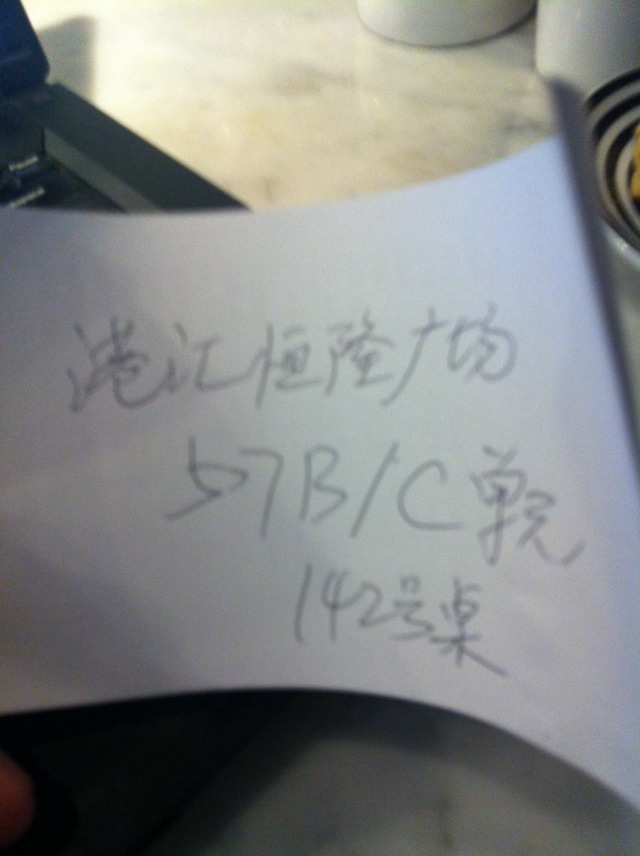 港汇恒隆广场
57B/C单元
142号桌